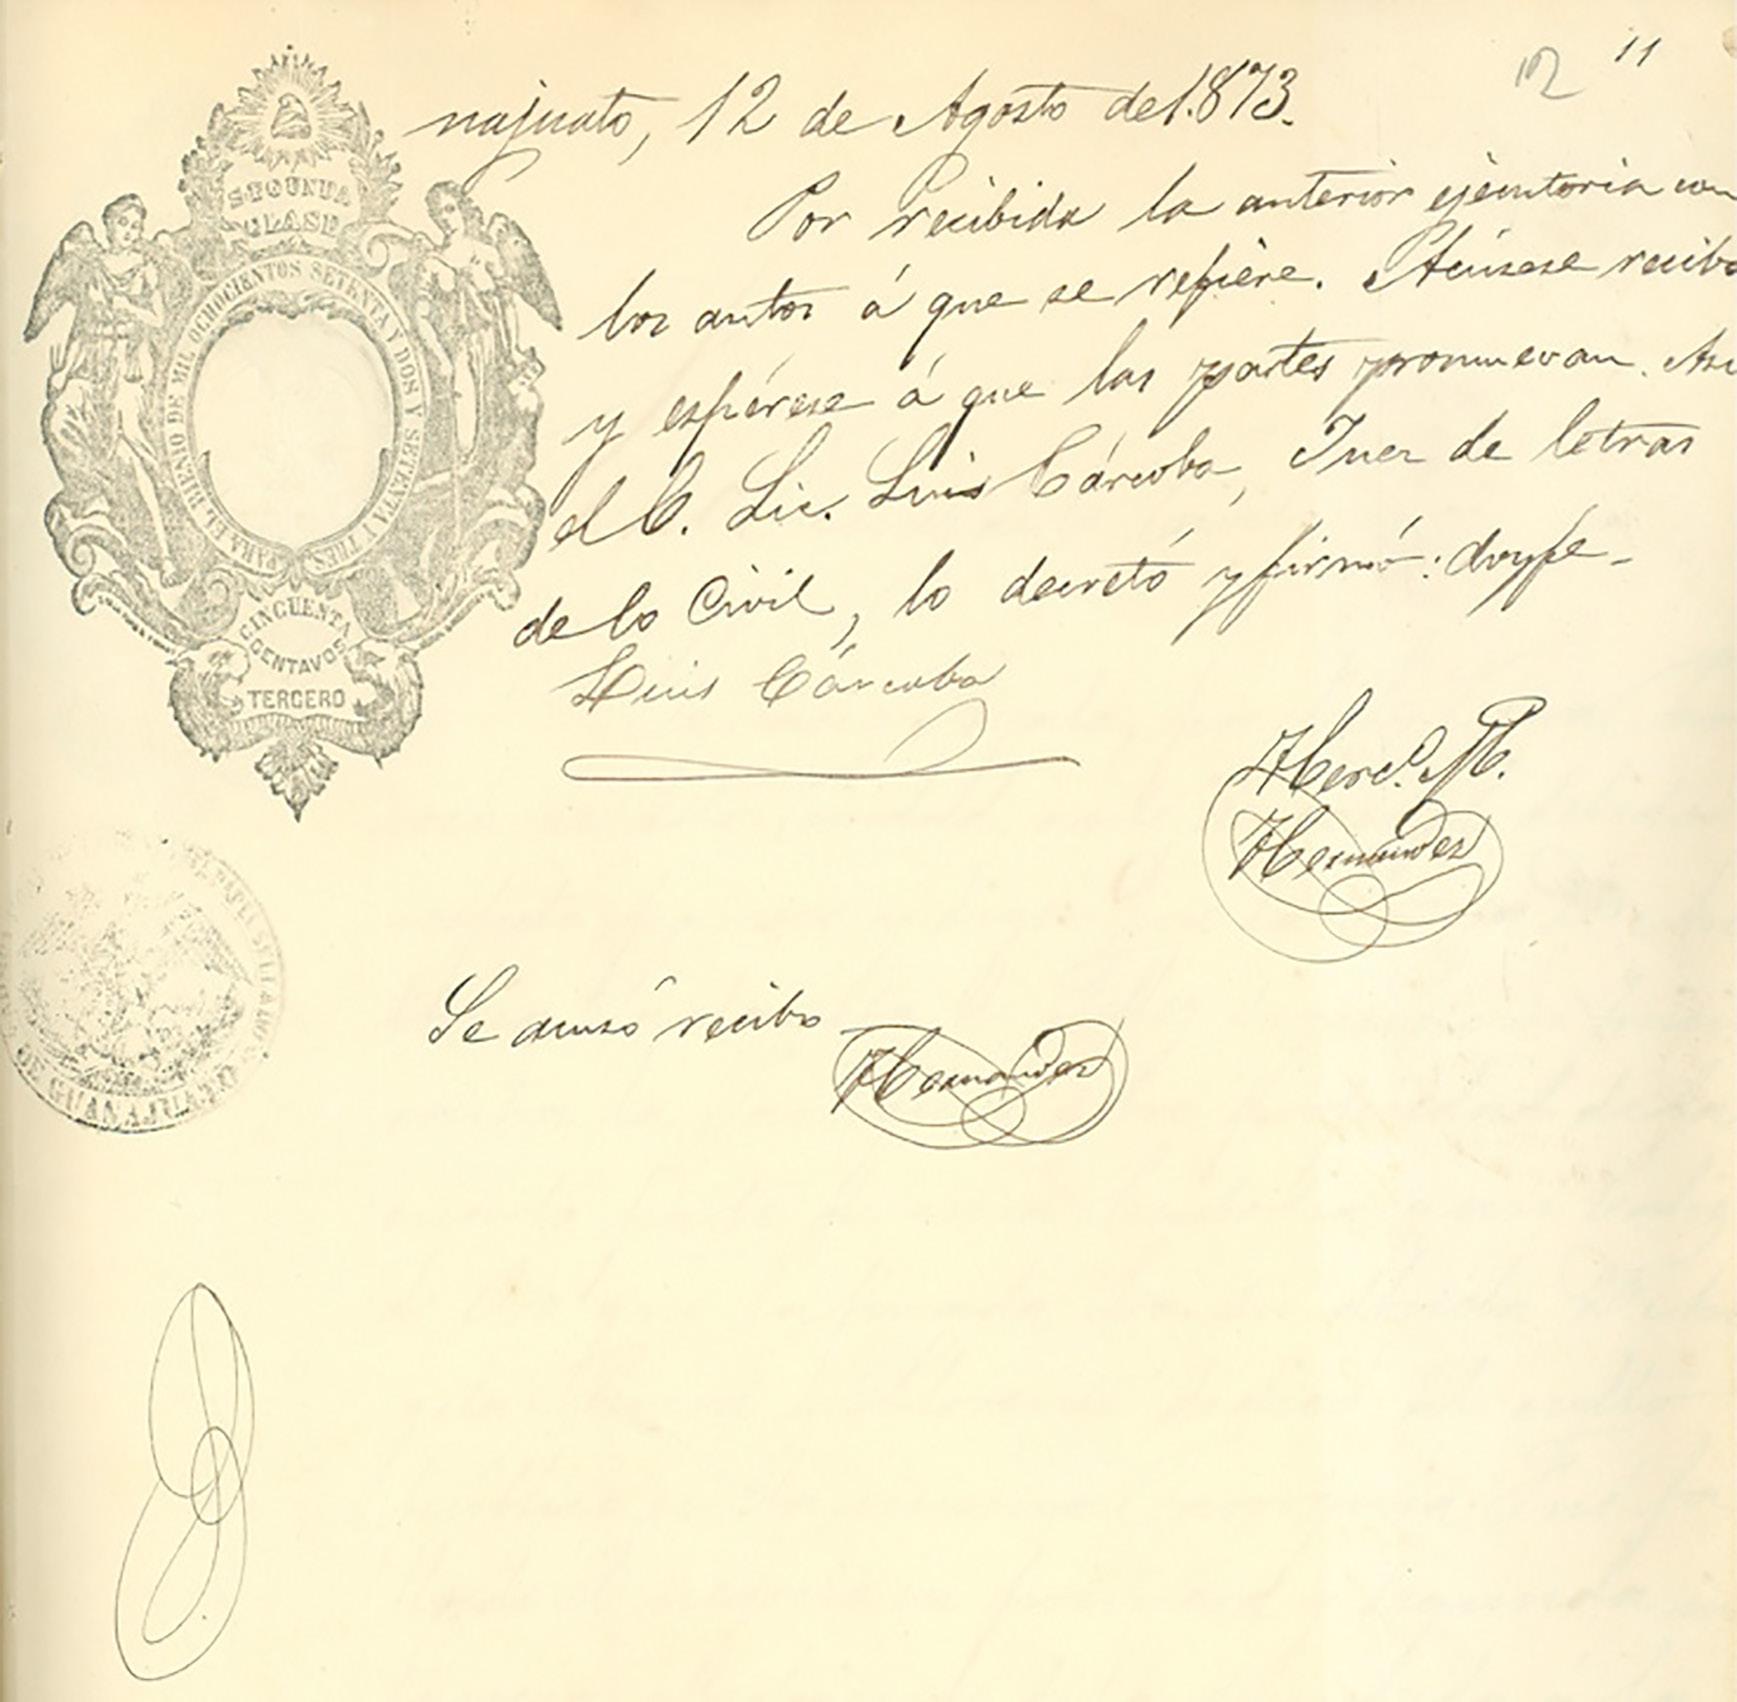 12 11
najuato, 12 de Agosto de 1.873.
Por recibida la anterior ejecutoria con
los autos á que se refiere. Acúsese recibo
y espérese á que las partes promuevan. Así
el C. Lic. Luis Cárcoba, Juez de letras
de lo Civil, lo decretó y firmó: doy fe_
Luis Cárcoba
Herc.º M.
Hernandez
Se acusó recibo
Hernandez
SEGUNDA
CLASE
PARA EL BIENIO DE MIL OCHOCIENTOS SETENTA Y DOS Y SETENTA Y TRES
CINCUENTA
CENTAVOS
TERCERO
PAPEL SELLADO
DE GUANAJUATO